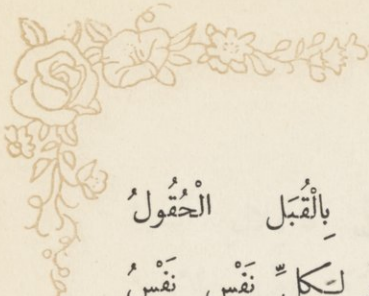 بِالْقُبَل الْحُقُولُ
لِكُلِّ نَفْسٍ نَفْسُ